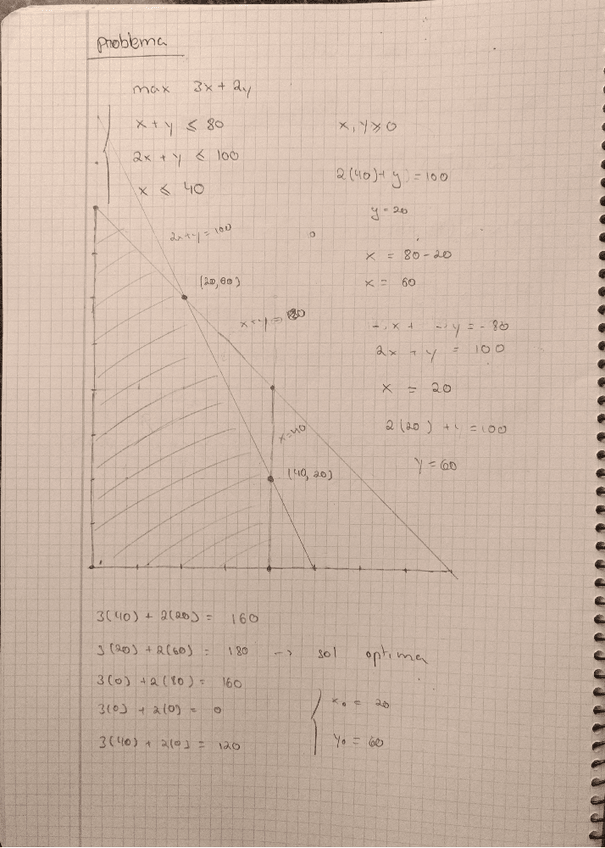 problema
max 3x + 2y
x + y ≤ 80
x, y ≥ 0
2x + y ≤ 100
x ≤ 40
2(40) + y = 100
y = 20
2x+y = 100
x = 80-20
x = 60
(20,60)
x+y = 80
-x + -y = -80
2x + y = 100
x = 20
x=40
2(20) + y = 100
y = 60
(40, 20)
3(40) + 2(20) = 160
3(20) + 2(60) = 180 -> sol optima
3(0) + 2(80) = 160
3(0) + 2(0) = 0
x0 = 20
3(40) + 2(0) = 120
y0 = 60